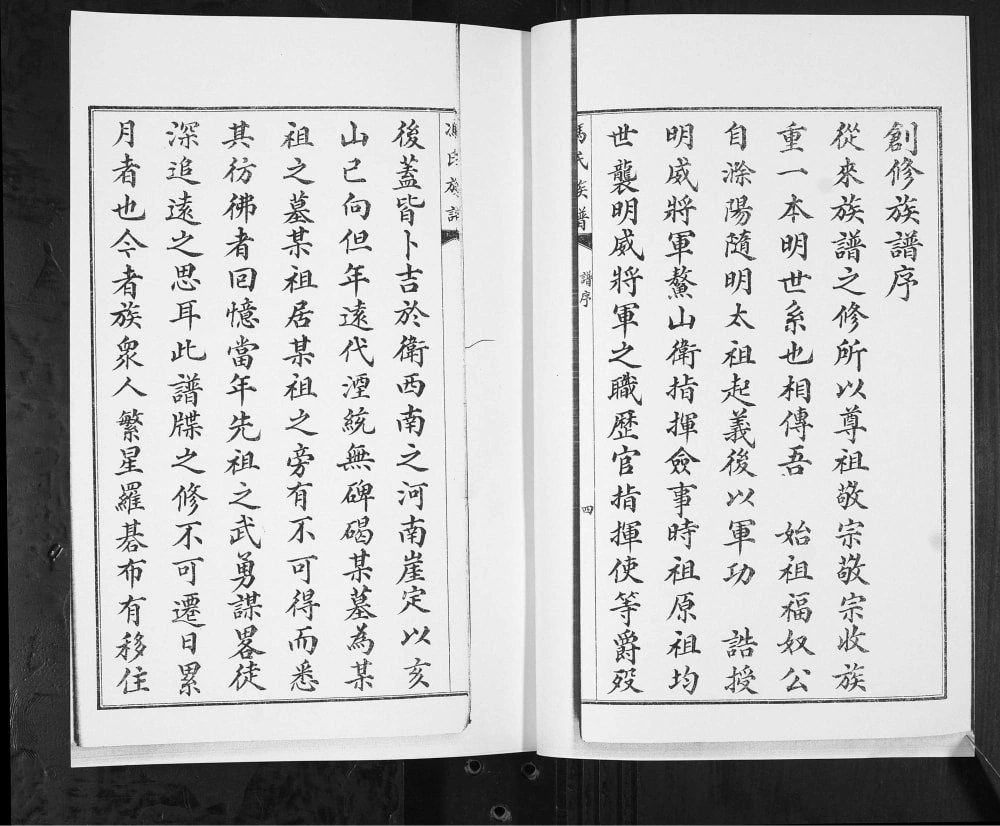 創修族譜序
從來族譜之修所以尊祖敬宗敬宗收族
重一本明世系也相傳吾　始祖福奴公
自滁陽隨明太祖起義後以軍功　誥授
明威將軍鰲山衛指揮僉事時祖原祖均
世襲明威將軍之職歷官指揮使等爵歿
馮氏族譜　譜序　四
馮氏族譜
後蓋皆卜吉於衛西南之河南崖定以亥
山已向但年遠代湮統無碑碣某墓為某
祖之墓某祖居某祖之旁有不可得而悉
其彷彿者回憶當年先祖之武勇謀畧徒
深追遠之思耳此譜牒之修不可遷日累
月者也今者族眾人繁星羅碁布有移住